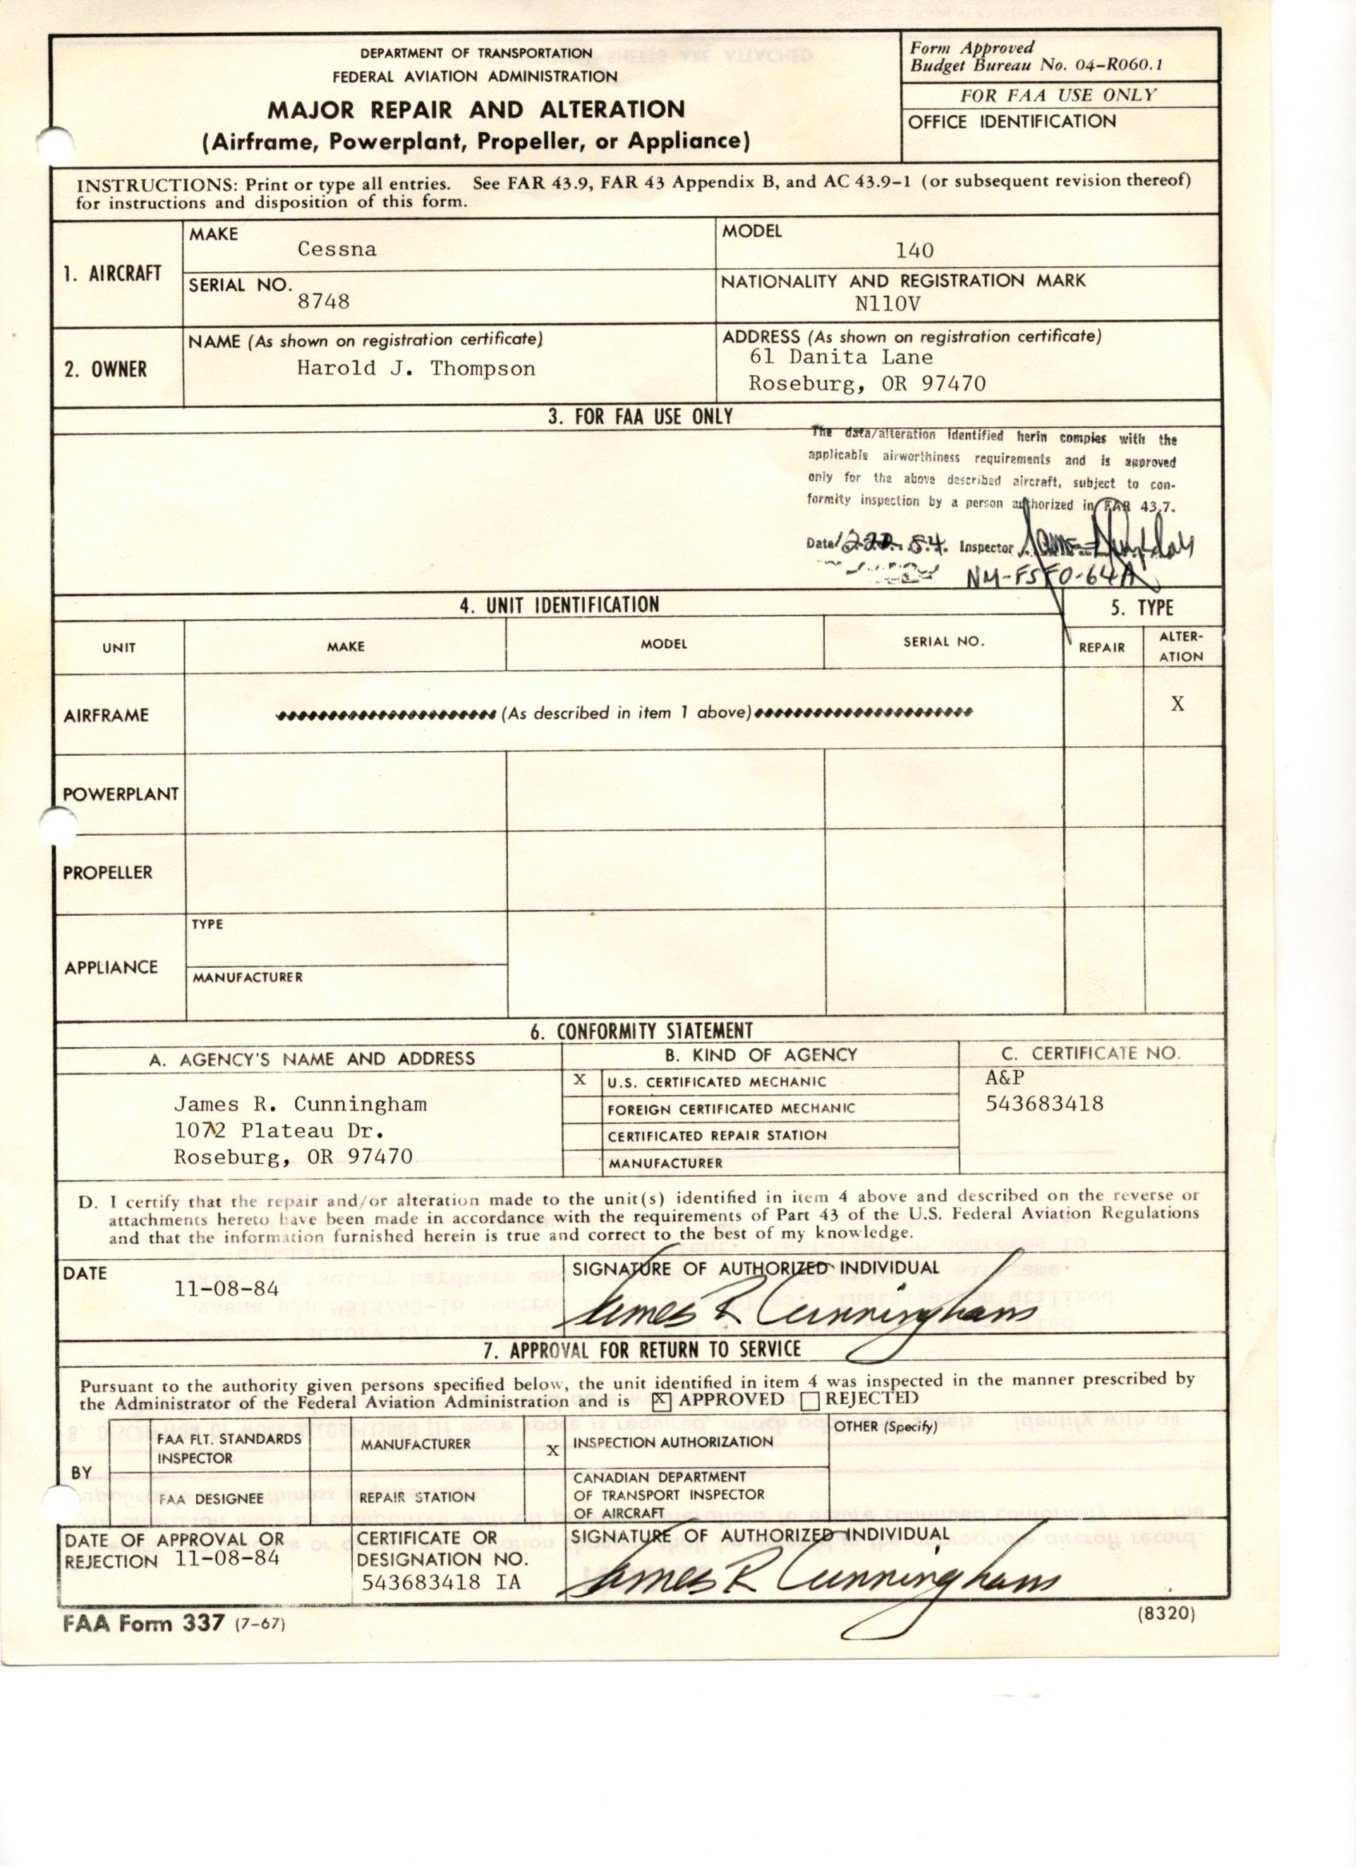 DEPARTMENT OF TRANSPORTATION
FEDERAL AVIATION ADMINISTRATION
MAJOR REPAIR AND ALTERATION
(Airframe, Powerplant, Propeller, or Appliance)
Form Approved
Budget Bureau No. 04-R060.1
FOR FAA USE ONLY
OFFICE IDENTIFICATION
INSTRUCTIONS: Print or type all entries. See FAR 43.9, FAR 43 Appendix B, and AC 43.9-1 (or subsequent revision thereof)
for instructions and disposition of this form.
1. AIRCRAFT
MAKE
Cessna
MODEL
140
SERIAL NO.
8748
NATIONALITY AND REGISTRATION MARK
N110V
2. OWNER
NAME (As shown on registration certificate)
Harold J. Thompson
ADDRESS (As shown on registration certificate)
61 Danita Lane
Roseburg, OR 97470
3. FOR FAA USE ONLY
The data/alteration identified herin complies with the
applicable airworthiness requirements and is approved
only for the above described aircraft, subject to con-
formity inspection by a person authorized in FAR 43.7.
Date Inspector
NM-FSFO-64A
4. UNIT IDENTIFICATION
5. TYPE
UNIT
MAKE
MODEL
SERIAL NO.
REPAIR
ALTER-
ATION
AIRFRAME
(As described in item 1 above)
X
POWERPLANT
PROPELLER
APPLIANCE
TYPE
MANUFACTURER
6. CONFORMITY STATEMENT
A. AGENCY'S NAME AND ADDRESS
B. KIND OF AGENCY
C. CERTIFICATE NO.
James R. Cunningham
1072 Plateau Dr.
Roseburg, OR 97470
X U.S. CERTIFICATED MECHANIC
FOREIGN CERTIFICATED MECHANIC
CERTIFICATED REPAIR STATION
MANUFACTURER
A&P
543683418
D. I certify that the repair and/or alteration made to the unit(s) identified in item 4 above and described on the reverse or
attachments hereto have been made in accordance with the requirements of Part 43 of the U.S. Federal Aviation Regulations
and that the information furnished herein is true and correct to the best of my knowledge.
DATE
11-08-84
SIGNATURE OF AUTHORIZED INDIVIDUAL
James R Cunningham
7. APPROVAL FOR RETURN TO SERVICE
Pursuant to the authority given persons specified below, the unit identified in item 4 was inspected in the manner prescribed by
the Administrator of the Federal Aviation Administration and is X APPROVED REJECTED
BY
FAA FLT. STANDARDS
INSPECTOR
MANUFACTURER
X INSPECTION AUTHORIZATION
OTHER (Specify)
FAA DESIGNEE
REPAIR STATION
CANADIAN DEPARTMENT
OF TRANSPORT INSPECTOR
OF AIRCRAFT
DATE OF APPROVAL OR
REJECTION 11-08-84
CERTIFICATE OR
DESIGNATION NO.
543683418 IA
SIGNATURE OF AUTHORIZED INDIVIDUAL
James R Cunningham
FAA Form 337 (7-67)
(8320)